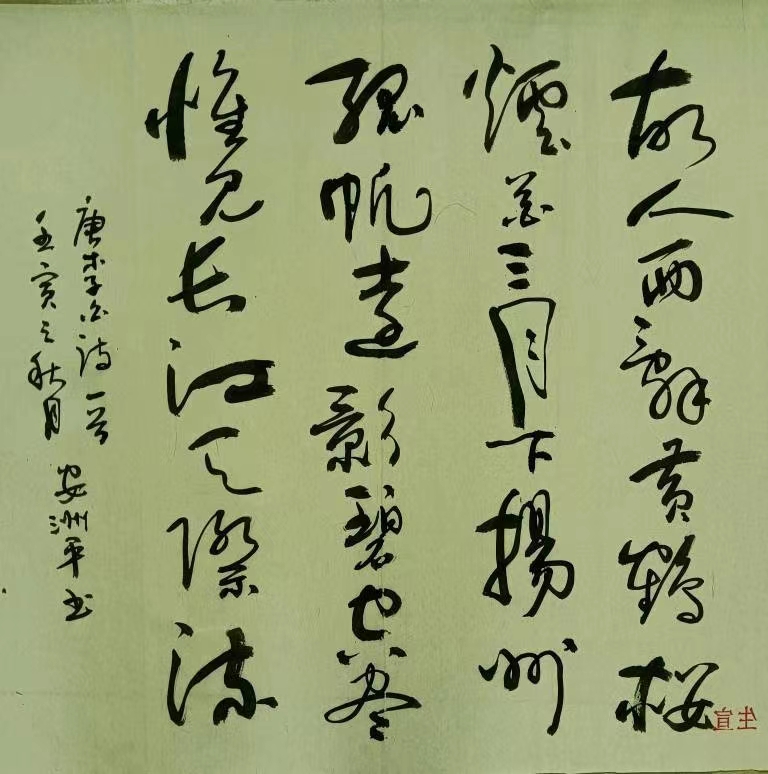 故人西辭黄鶴楼
煙花三月下揚州
孤帆遠影碧空盡
惟见长江天際流
唐李白诗一首
壬寅之秋月 安洲平书